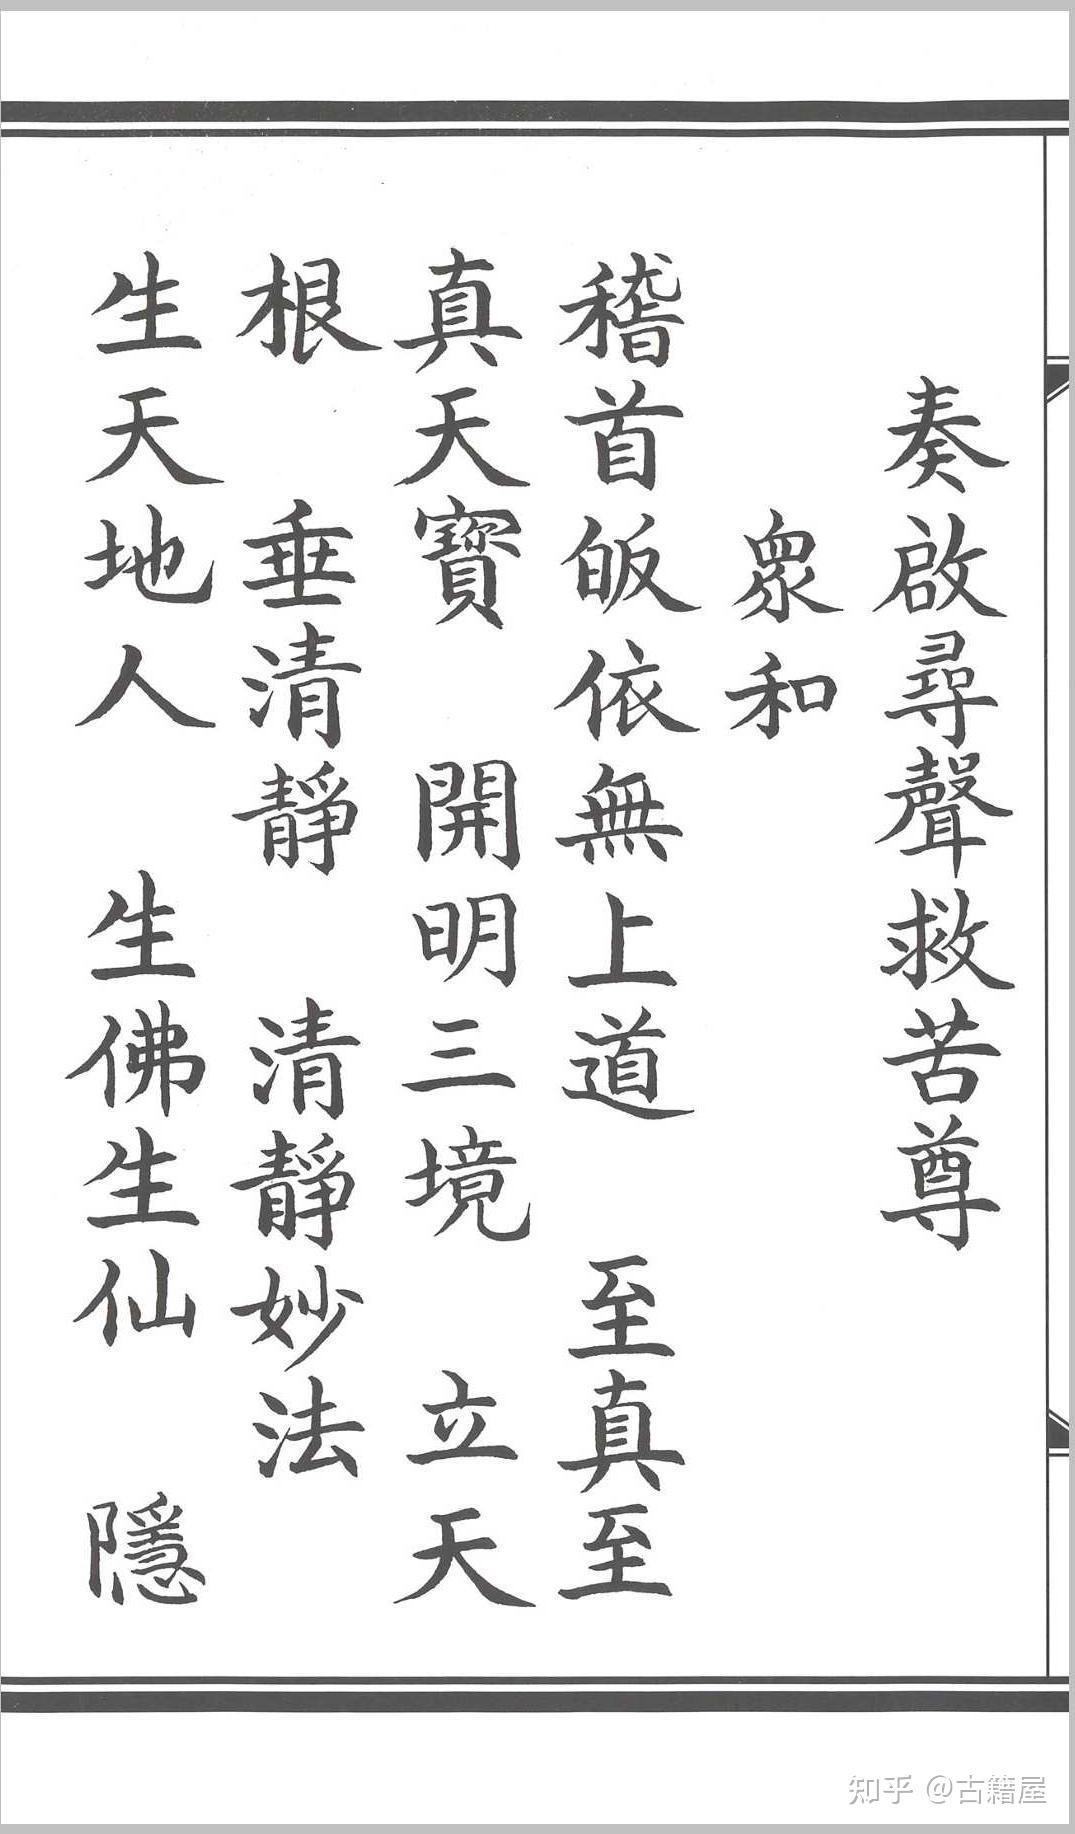 奏啟尋聲救苦尊
眾和
稽首皈依無上道 至真至
真天寶 開明三境 立天
根 垂清靜 清靜妙法
生天地人 生佛生仙 隱
知乎 @古籍屋